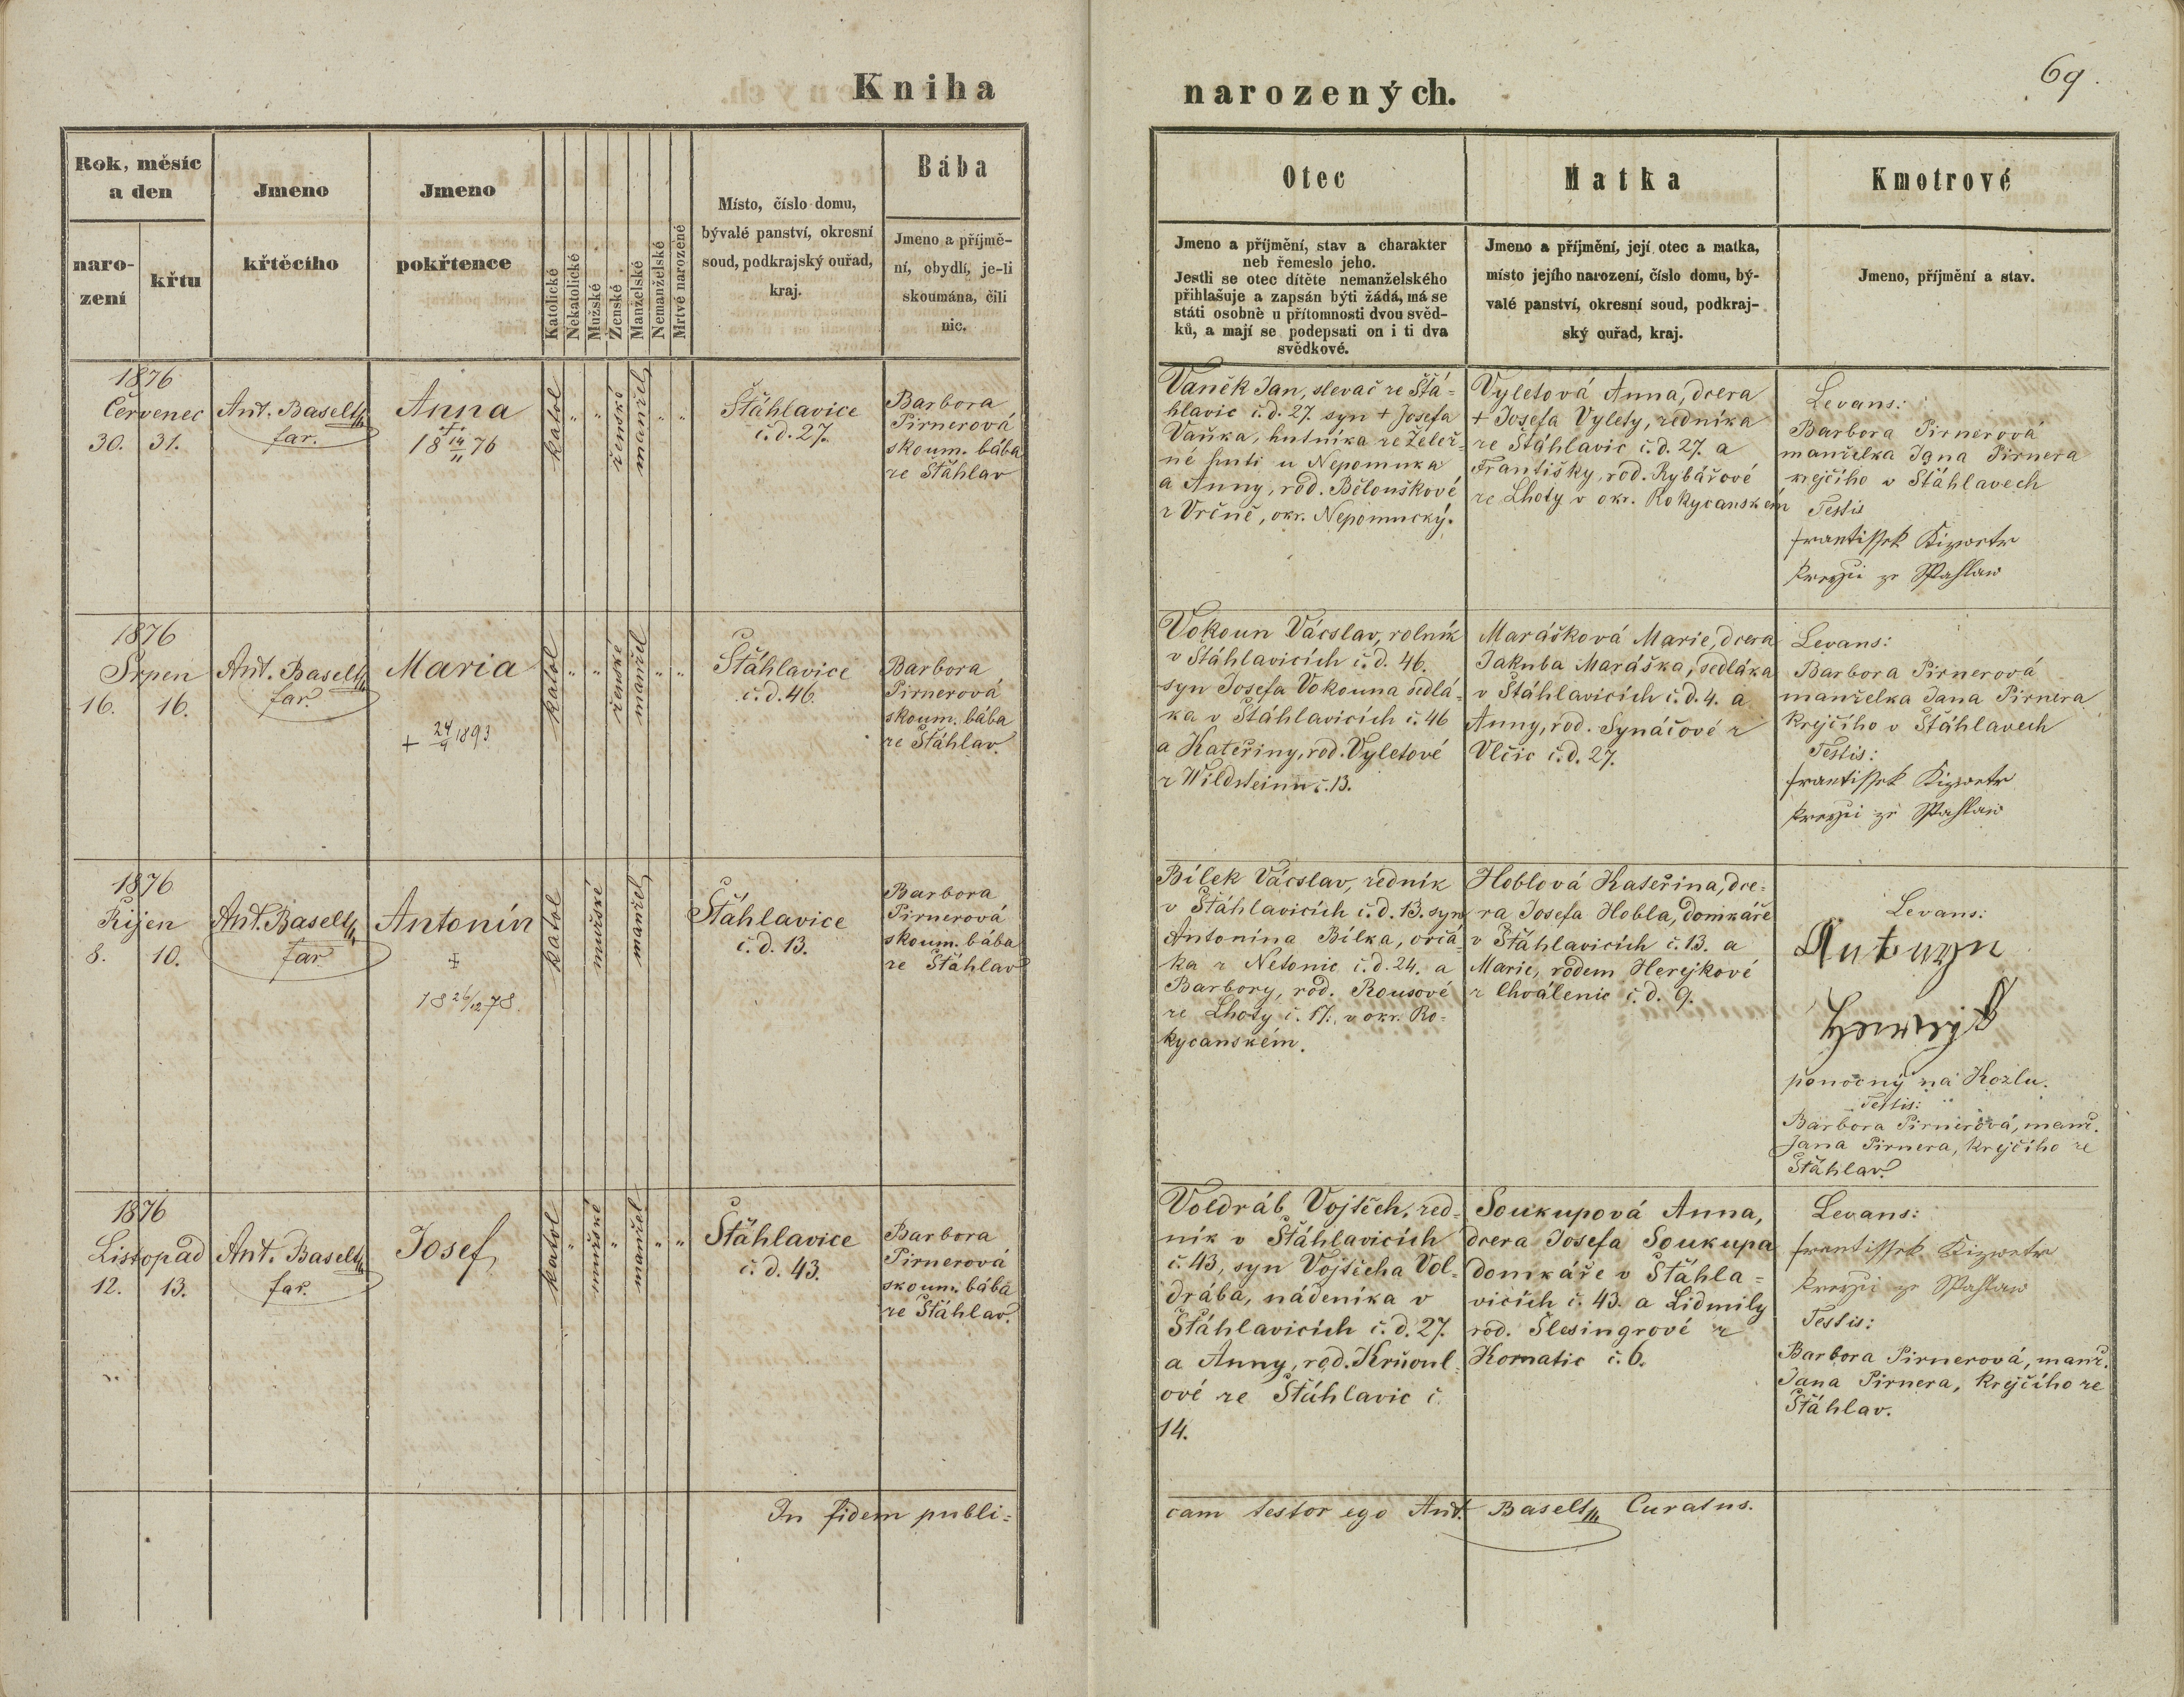 Kniha
narozených.
69.
Rok, měsíc
a den
naro-
zení
křtu
Jmeno
křtěcího
Jmeno
pokřtence
Katolické
Nekatolické
Mužské
Ženské
Manželské
Nemanželské
Mrtvě narozené
Místo, číslo domu,
bývalé panství, okresní
soud, podkrajský ouřad,
kraj.
Bába
Jmeno a příjmě-
ní, obydlí, je-li
skoumána, čili
nic.
Otec
Jmeno a příjmění, stav a charakter
neb řemeslo jeho.
Jestli se otec dítěte nemanželského
přihlašuje a zapsán býti žádá, má se
státi osobně u přítomnosti dvou svěd-
ků, a mají se podepsati on i ti dva
svědkové.
Matka
Jmeno a příjmění, její otec a matka,
místo jejího narození, číslo domu, bý-
valé panství, okresní soud, podkraj-
ský ouřad, kraj.
Kmotrové
Jmeno, příjmění a stav.
1876
Červenec
30. 31.
Ant. Baselt
far.
Anna
+
18 14/11 76
katol
"
"
ženské
manžel
"
"
Šťáhlavice
č.d. 27.
Barbora
Pirnerová
skoum. bába
ze Šťáhlav
Vaněk Jan, slevač ze Šťá-
hlavic č.d. 27. syn + Josefa
Vaňka, hutníka ze Želez-
né huti u Nepomuka
a Anny, rod. Běloušková
z Vrčně, okr. Nepomucký.
Vyletová Anna, dcera
+ Josefa Vylety, zedníka
ze Šťáhlavic č.d. 27. a
Františky, rod. Rybářové
ze Lhoty v okr. Rokycanském
Levans:
Barbora Pirnerová
manželka Jana Pirnera
krejčího v Šťáhlavech
Testis
1876
Srpen
16. 16.
Ant. Baselt
far.
Maria
+ 24/9 1893
katol
"
"
ženské
manžel
"
"
Šťáhlavice
č.d. 46.
Barbora
Pirnerová
skoum. bába
ze Šťáhlav.
Vokoun Vácslav, rolník
v Šťáhlavicích č.d. 46.
syn Josefa Vokouna sedlá-
ka v Šťáhlavicích č. 46
a Kateřiny, rod. Vyletové
z Wildsteinu č. 13.
Marášková Marie, dcera
Jakuba Maráška, sedláka
v Šťáhlavicích č.d. 4. a
Anny, rod. Synáčové z
Vlčic č.d. 27.
Levans:
Barbora Pirnerová
manželka Jana Pirnera
krejčího v Šťáhlavech
Testis:
1876
Říjen
8. 10.
Ant. Baselt
far.
Antonín
+
18 26/12 78.
katol
mužské
manžel
Šťáhlavice
č.d. 13.
Barbora
Pirnerová
skoum. bába
ze Šťáhlav
Bílek Vácslav, zedník
v Šťáhlavicích č.d. 13. syn
Antonína Bílka, ovčá-
ka z Netonic č.d. 24. a
Barbory, rod. Rousové
ze Lhoty č. 17., v okr. Ro-
kycanském.
Hoblová Kateřina, dce-
ra Josefa Hobla, domkáře
v Šťáhlavicích č. 13. a
Marie, rodem Herejkové
z Chválenic č.d. 9.
Levans:
Antonyn
ponocný na Kozlu.
Testis:
Barbora Pirnerová, manž.
Jana Pirnera, krejčího ze
Šťáhlav.
1876
Listopad
12. 13.
Ant. Baselt
far.
Josef
katol
"
mužské
"
manžel
"
"
Šťáhlavice
č.d. 43.
Barbora
Pirnerová
skoum. bába
ze Šťáhlav.
Voldráb Vojtěch, zed-
ník v Šťáhlavicích
č. 43, syn Vojtěcha Vol-
drába, nádeníka v
Šťáhlavicích č.d. 27.
a Anny, rod. Krňoul-
ové ze Šťáhlavic č.
14.
Soukupová Anna,
dcera Josefa Soukupa
domkáře v Šťáhla-
vicích č. 43. a Lidmily
rod. Šlesingrové z
Kornatic č. 6.
Levans:
Testis:
Barbora Pirnerová, manž.
Jana Pirnera, krejčího ze
Šťáhlav.
In fidem publi-
cam testor ego Ant. Baselt Curatus.